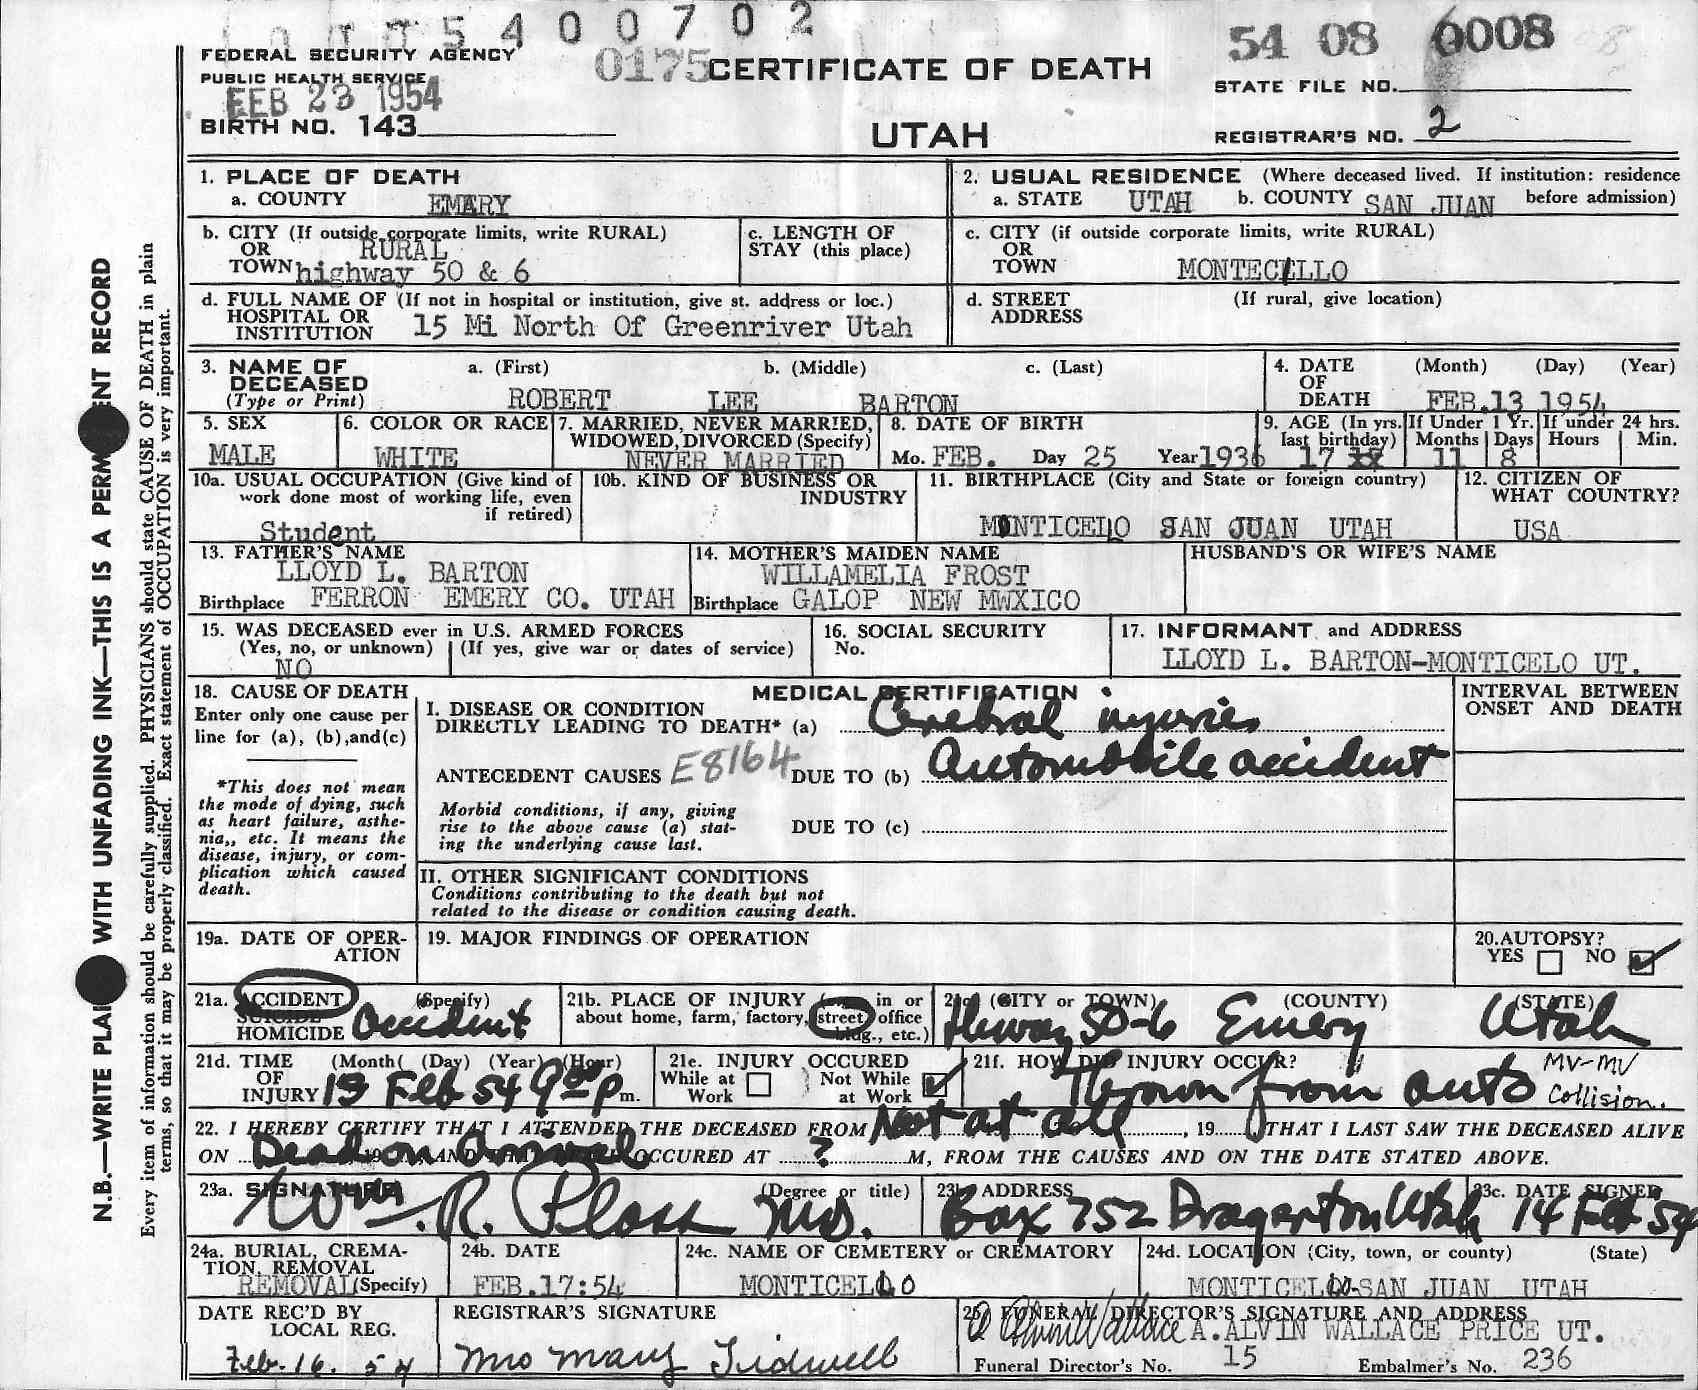 5 4 0 0 7 0 2
54 08 0008
FEDERAL SECURITY AGENCY
PUBLIC HEALTH SERVICE
0175
CERTIFICATE OF DEATH
STATE FILE NO.
FEB 23 1954
BIRTH NO. 143
UTAH
REGISTRAR'S NO. 2
N.B.—WRITE PLAI WITH UNFADING INK—THIS IS A PERM ENT RECORD
Every item of information should be carefully supplied. PHYSICIANS should state CAUSE OF DEATH in plain
terms, so that it may be properly classified. Exact statement of OCCUPATION is very important.
1. PLACE OF DEATH
a. COUNTY EMERY
2. USUAL RESIDENCE (Where deceased lived. If institution: residence
a. STATE UTAH b. COUNTY SAN JUAN before admission)
b. CITY (If outside corporate limits, write RURAL)
OR RURAL
TOWN highway 50 & 6
c. LENGTH OF
STAY (this place)
c. CITY (if outside corporate limits, write RURAL)
OR
TOWN MONTECILLO
d. FULL NAME OF (If not in hospital or institution, give st. address or loc.)
HOSPITAL OR
INSTITUTION 15 Mi North Of Greenriver Utah
d. STREET (If rural, give location)
ADDRESS
3. NAME OF a. (First) b. (Middle) c. (Last)
DECEASED
(Type or Print) ROBERT LEE BARTON
4. DATE (Month) (Day) (Year)
OF
DEATH FEB.13 1954
5. SEX
MALE
6. COLOR OR RACE
WHITE
7. MARRIED, NEVER MARRIED,
WIDOWED, DIVORCED (Specify)
NEVER MARRIED
8. DATE OF BIRTH
Mo. FEB. Day 25 Year 1936
9. AGE (In yrs. If Under 1 Yr. If under 24 hrs.
last birthday) Months Days Hours Min.
17 11 8
10a. USUAL OCCUPATION (Give kind of
work done most of working life, even
if retired)
Student
10b. KIND OF BUSINESS OR
INDUSTRY
11. BIRTHPLACE (City and State or foreign country)
MONTICELO SAN JUAN UTAH
12. CITIZEN OF
WHAT COUNTRY?
USA
13. FATHER'S NAME
LLOYD L. BARTON
Birthplace FERRON EMERY CO. UTAH
14. MOTHER'S MAIDEN NAME
WILLAMELIA FROST
Birthplace GALOP NEW MWXICO
HUSBAND'S OR WIFE'S NAME
15. WAS DECEASED ever in U.S. ARMED FORCES
(Yes, no, or unknown) (If yes, give war or dates of service)
NO
16. SOCIAL SECURITY
No.
17. INFORMANT and ADDRESS
LLOYD L. BARTON-MONTICELO UT.
18. CAUSE OF DEATH
Enter only one cause per
line for (a), (b),and(c)
*This does not mean
the mode of dying, such
as heart failure, asthe-
nia,, etc. It means the
disease, injury, or com-
plication which caused
death.
MEDICAL CERTIFICATION
I. DISEASE OR CONDITION
DIRECTLY LEADING TO DEATH* (a) Cerebral injuries
ANTECEDENT CAUSES E8164 DUE TO (b) Automobile accident
Morbid conditions, if any, giving
rise to the above cause (a) stat-
ing the underlying cause last.
DUE TO (c)
II. OTHER SIGNIFICANT CONDITIONS
Conditions contributing to the death but not
related to the disease or condition causing death.
INTERVAL BETWEEN
ONSET AND DEATH
19a. DATE OF OPER-
ATION
19. MAJOR FINDINGS OF OPERATION
20. AUTOPSY?
YES NO
21a. ACCIDENT (Specify)
SUICIDE
HOMICIDE Accident
21b. PLACE OF INJURY in or
about home, farm, factory, street, office
bldg., etc.)
21c. (CITY or TOWN) (COUNTY) (STATE)
Hiway 50-6 Emery Utah
21d. TIME (Month( (Day) (Year) (Hour)
OF
INJURY 13 Feb 54 9 00 P m.
21e. INJURY OCCURED
While at Not While
Work at Work
21f. HOW DID INJURY OCCUR?
Thrown from auto MV-MV
Collision.
22. I HEREBY CERTIFY THAT I ATTENDED THE DECEASED FROM Not at all, 19 THAT I LAST SAW THE DECEASED ALIVE
ON Dead on Arrival OCCURED AT ? M, FROM THE CAUSES AND ON THE DATE STATED ABOVE.
23a. SIGNATURE (Degree or title)
Wm. R. M.D.
23b. ADDRESS
Box 752 Dragerton Utah
23c. DATE SIGNED
14 Feb 54
24a. BURIAL, CREMA-
TION, REMOVAL
REMOVAL (Specify)
24b. DATE
FEB.17:54
24c. NAME OF CEMETERY or CREMATORY
MONTICELLO
24d. LOCATION (City, town, or county) (State)
MONTICELLO-SAN JUAN UTAH
DATE REC'D BY
LOCAL REG.
Feb. 16. 54
REGISTRAR'S SIGNATURE
Mrs Mary Tidwell
25. FUNERAL DIRECTOR'S SIGNATURE AND ADDRESS
A Alvin Wallace A. ALVIN WALLACE PRICE UT.
Funeral Director's No. 15 Embalmer's No. 236